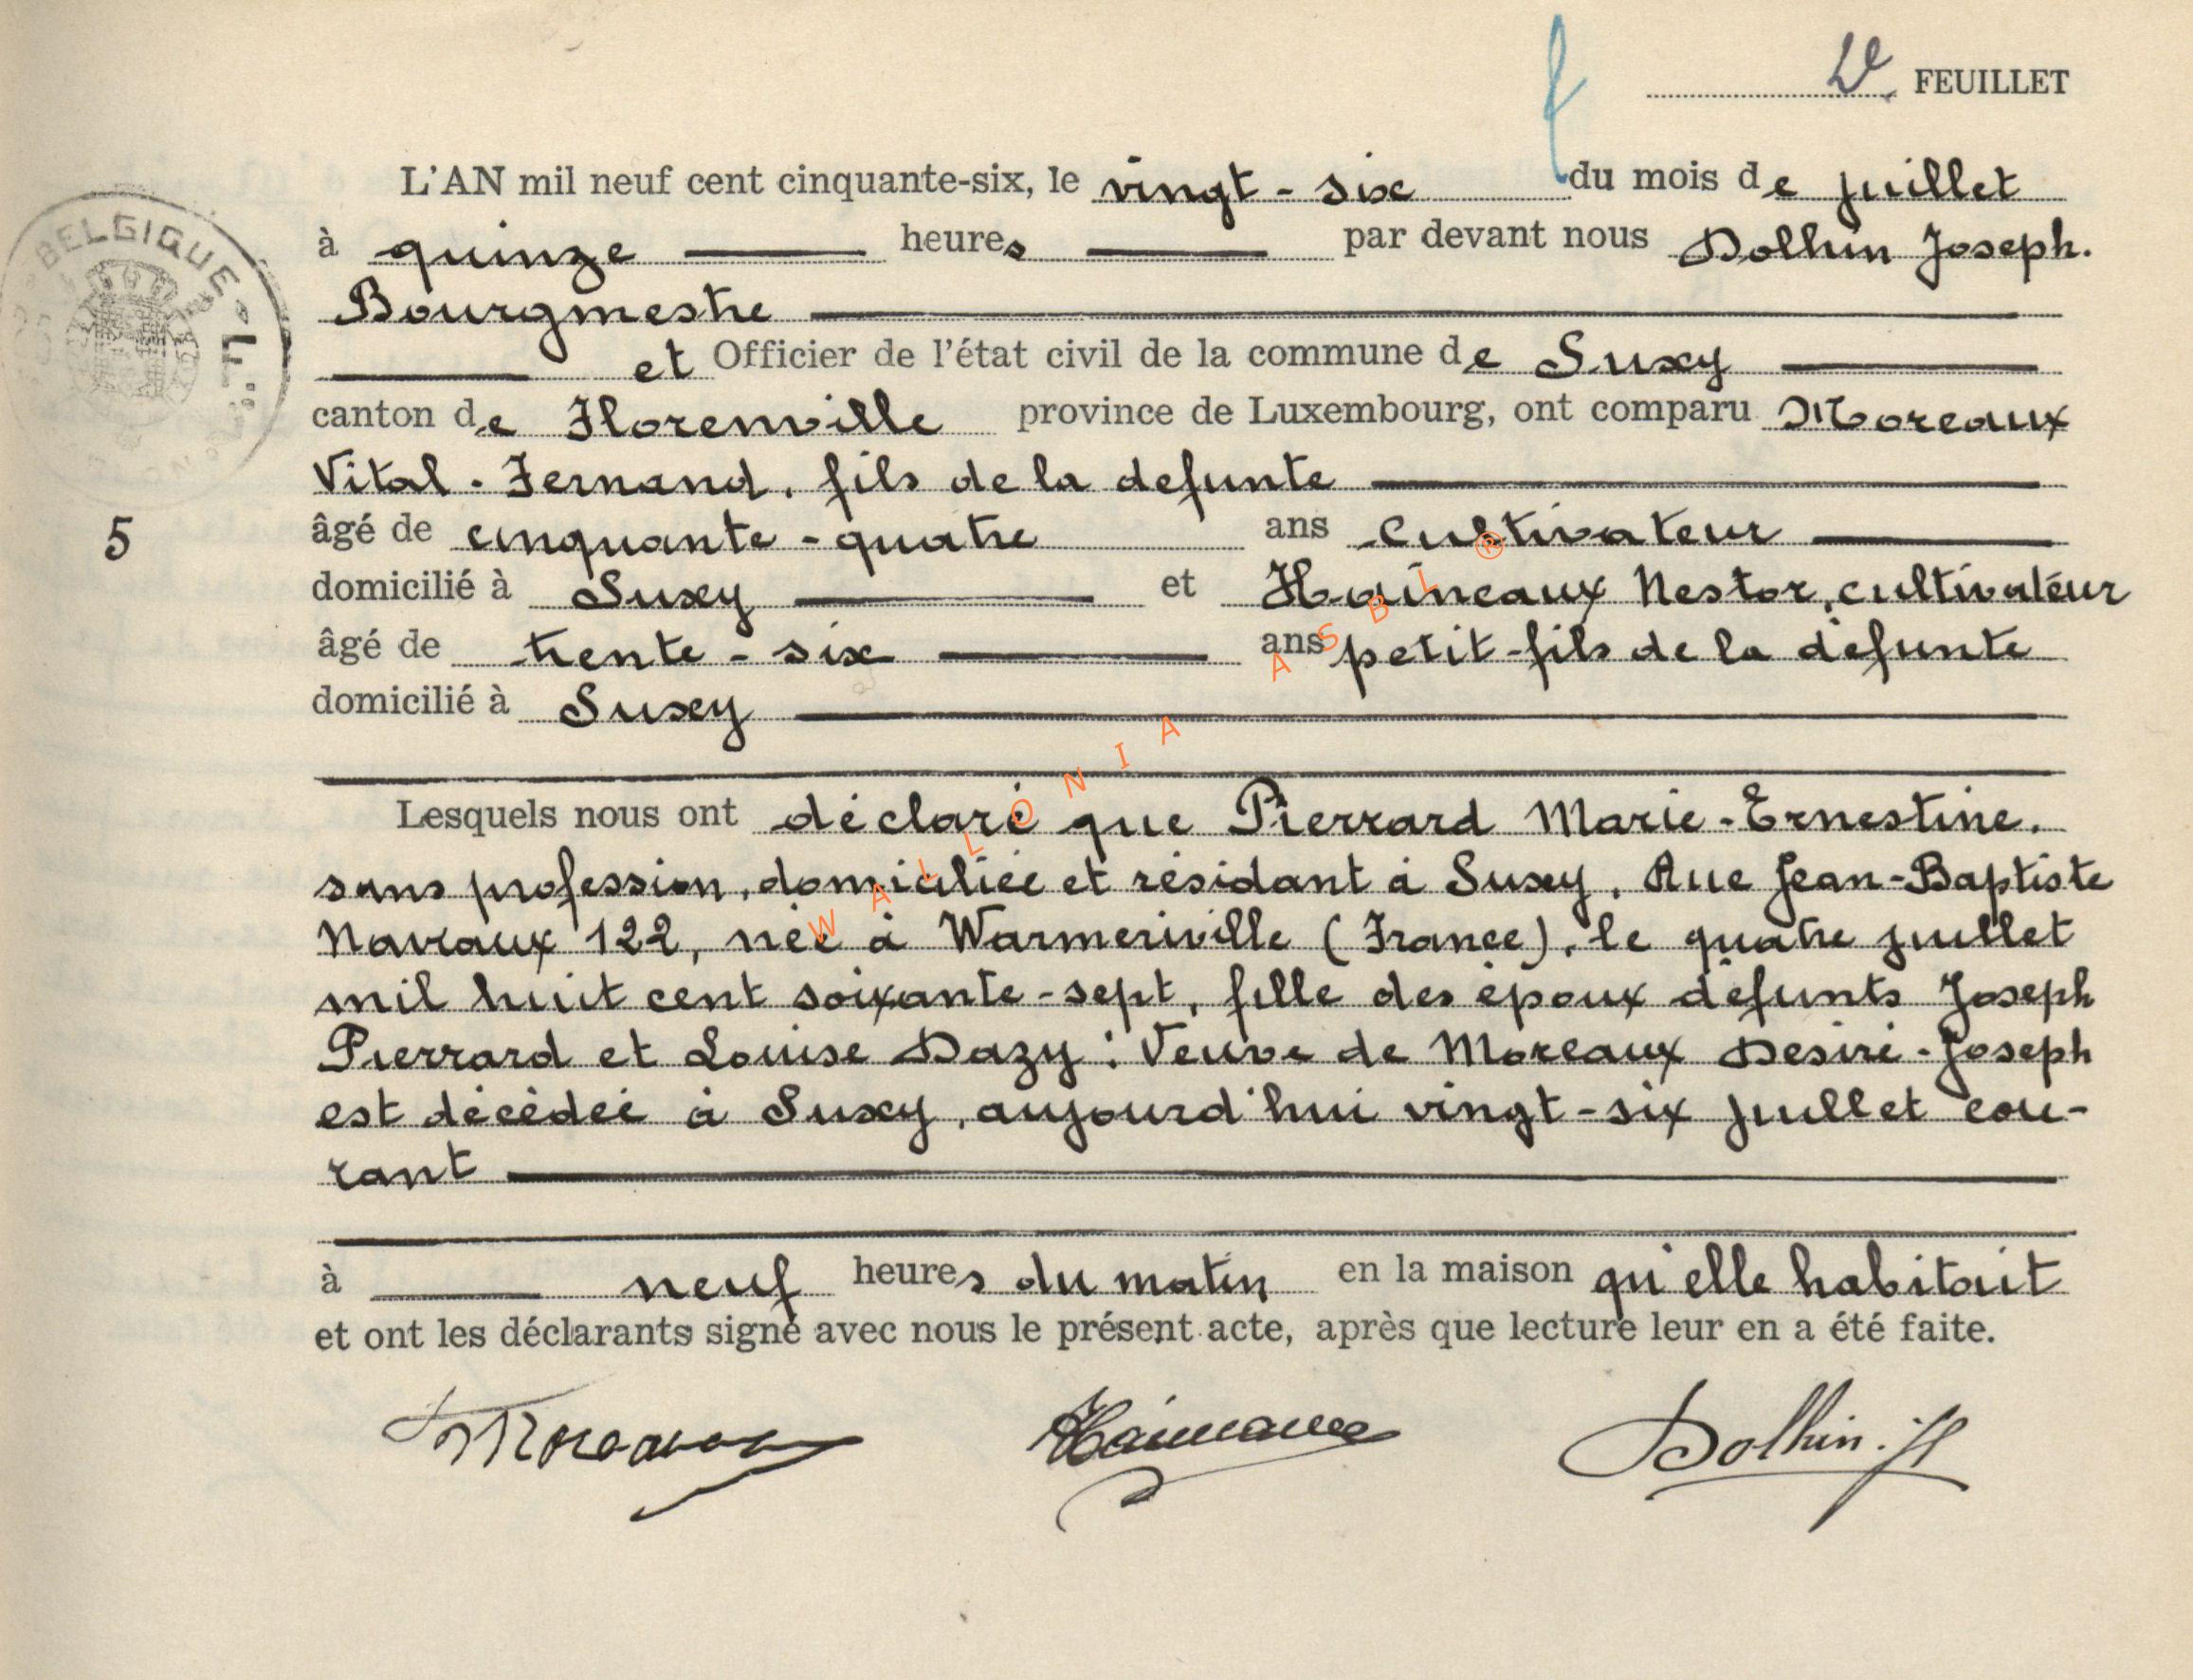 2e FEUILLET
L'AN mil neuf cent cinquante-six, le vingt-six du mois de juillet
BELGIQUE
à quinze heures par devant nous Dolhin Joseph.
Bourgmestre
et Officier de l'état civil de la commune de Suxy
canton de Florenville province de Luxembourg, ont comparu Moreaux
Vital-Fernand, fils de la defunte
5
âgé de cinquante-quatre ans Cultivateur
domicilié à Suxy et Haineaux Nestor, cultivateur
âgé de trente-six ans petit-fils de la défunte
domicilié à Suxy
WALLONIA ASBL ®
Lesquels nous ont déclaré que Pierrard Marie-Ernestine.
sans profession, domiciliée et résidant à Suxy, Rue Jean-Baptiste
Navaux 122, née à Warmeriville (France), le quatre juillet
mil huit cent soixante-sept, fille des époux défunts Joseph
Pierrard et Louise Dazy : Veuve de Moreaux Désiré-Joseph
est décédée à Suxy, aujourd'hui vingt-six juillet cou-
rant
à neuf heures du matin en la maison qu'elle habitait
et ont les déclarants signé avec nous le présent acte, après que lecture leur en a été faite.
Dolhin. J